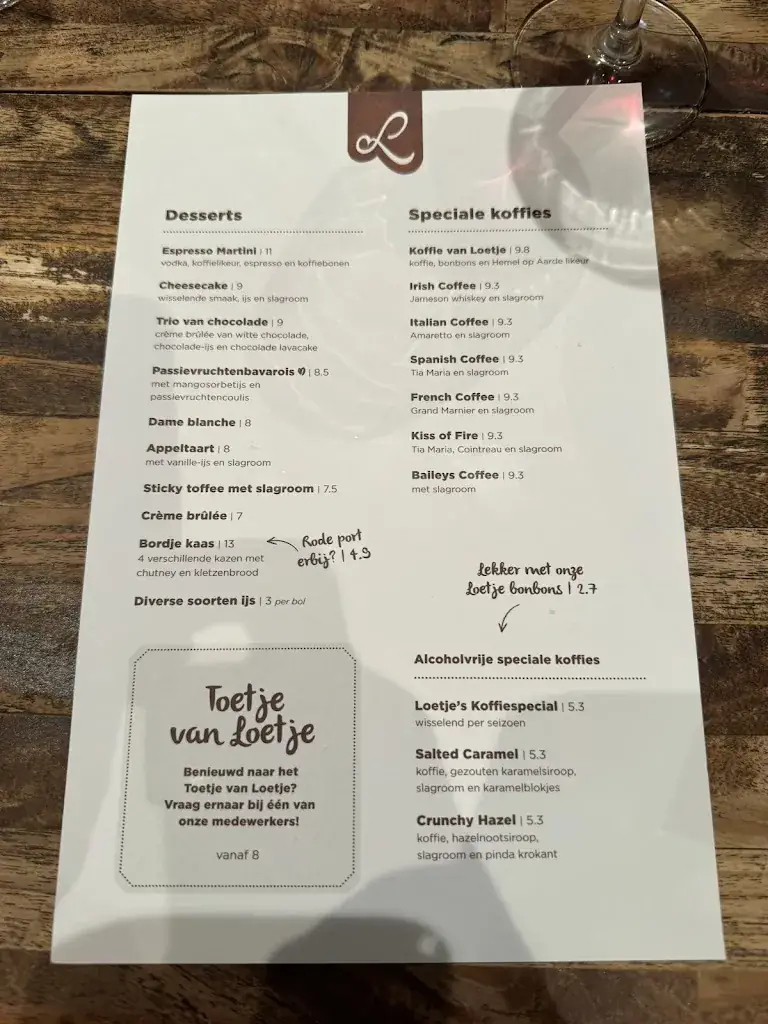 L
Desserts
Espresso Martini | 11
vodka, koffielikeur, espresso en koffiebonen
Cheesecake | 9
wisselende smaak, ijs en slagroom
Trio van chocolade | 9
crème brûlée van witte chocolade,
chocolade-ijs en chocolade lavacake
Passievruchtenbavarois | 8.5
met mangosorbetijs en
passievruchtencoulis
Dame blanche | 8
Appeltaart | 8
met vanille-ijs en slagroom
Sticky toffee met slagroom | 7.5
Crème brûlée | 7
Bordje kaas | 13
4 verschillende kazen met
chutney en kletzenbrood
Rode port
erbij? | 4.9
Diverse soorten ijs | 3 per bol
Toetje
van Loetje
Benieuwd naar het
Toetje van Loetje?
Vraag ernaar bij één van
onze medewerkers!
vanaf 8
Speciale koffies
Koffie van Loetje | 9.8
koffie, bonbons en Hemel op Aarde likeur
Irish Coffee | 9.3
Jameson whiskey en slagroom
Italian Coffee | 9.3
Amaretto en slagroom
Spanish Coffee | 9.3
Tia Maria en slagroom
French Coffee | 9.3
Grand Marnier en slagroom
Kiss of Fire | 9.3
Tia Maria, Cointreau en slagroom
Baileys Coffee | 9.3
met slagroom
Lekker met onze
Loetje bonbons | 2.7
Alcoholvrije speciale koffies
Loetje's Koffiespecial | 5.3
wisselend per seizoen
Salted Caramel | 5.3
koffie, gezouten karamelsiroop,
slagroom en karamelblokjes
Crunchy Hazel | 5.3
koffie, hazelnootsiroop,
slagroom en pinda krokant